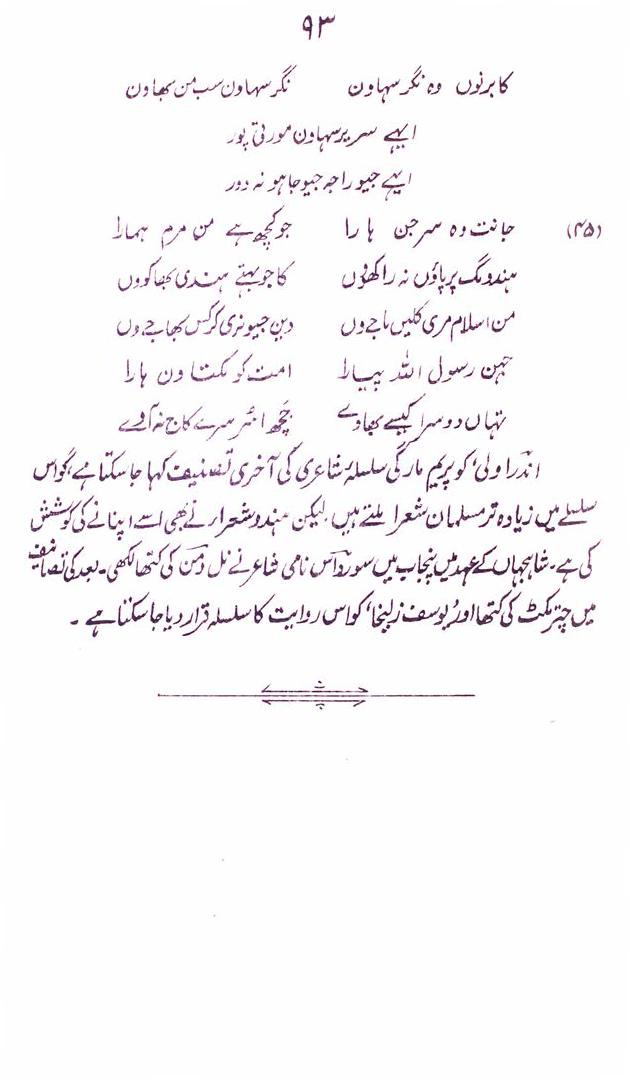 ۹۳
کا برنوں وہ نگر سہاون نگر سہاون سب من بھاون
ایہے سریر سہاون مورتی پور
ایہے جیو راجہ جیو جاہو نہ دور
(۴۵) جانت وہ سرجن ہارا جو کچھ ہے من مرم ہمارا
ہندو مگ پر پاؤں نہ راکھوں کا جو بہتے ہندی بھاکوں
من اسلام مری کلیں ماجوں دین جیونری کرکس بھاجوں
جہن رسول اللہ پیارا امت کو مکتاون ہارا
تہاں دوسرا کیسے بھاوے چچھ اسر سرے کاج نہ آوے
اندراوتی، کو پریم مارگی سلسلۂ شاعری کی آخری تصنیف کہا جاسکتا ہے، گو اس
سلسلے میں زیادہ تر مسلمان شعرا ملتے ہیں لیکن ہندو شعراء نے بھی اسے اپنانے کی کوشش
کی ہے۔ شاہجہاں کے عہد میں پنجاب میں سورداس نامی شاعر نے نل دمن کی کتھا لکھی۔ بعد کی تصانیف
میں چتر مکٹ کی کتھا اور 'یوسف زلیخا' کو اس روایت کا سلسلہ قرار دیا جاسکتا ہے۔